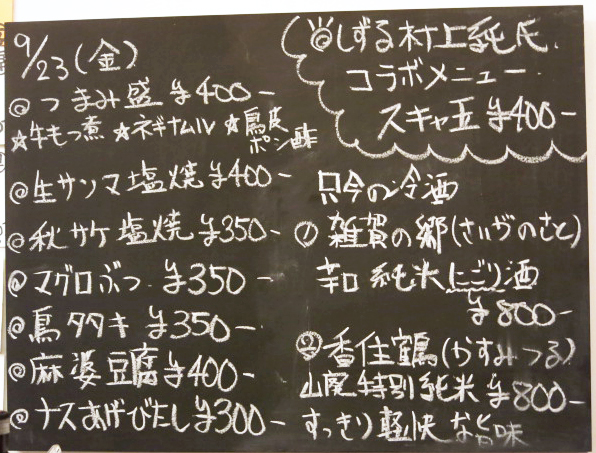 9/23(金)
@つまみ盛 ¥400-
☆牛もつ煮 ☆ネギナムル ☆鳥皮ポン酢
@生サンマ塩焼 ¥400-
@秋サケ塩焼 ¥350-
@マグロぶつ ¥350-
@鳥タタキ ¥350-
@麻婆豆腐 ¥400-
@ナスあげびたし ¥300-
しずる村上純氏
コラボメニュー
スキャ玉 ¥400-
只今の冷酒
① 雑賀の郷(さいがのさと)
辛口 純米 にごり酒
¥800-
② 香住鶴(かすみつる)
山廃特別純米 ¥800-
すっきり軽快な旨味